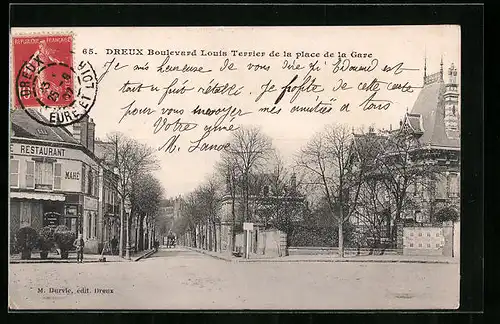 65. DREUX Boulevard Louis Terrier de la place de la Gare
Je suis heureuse de vous dire qu'Edouard est
tout a fait rétabli. Je profite de cette carte
pour vous envoyer mes amitiés à tous
Votre amie
M.
REPUBLIQUE FRANÇAISE
DREUX
EURE-ET-LOIR
RESTAURANT
M. Durvie, édit. Dreux